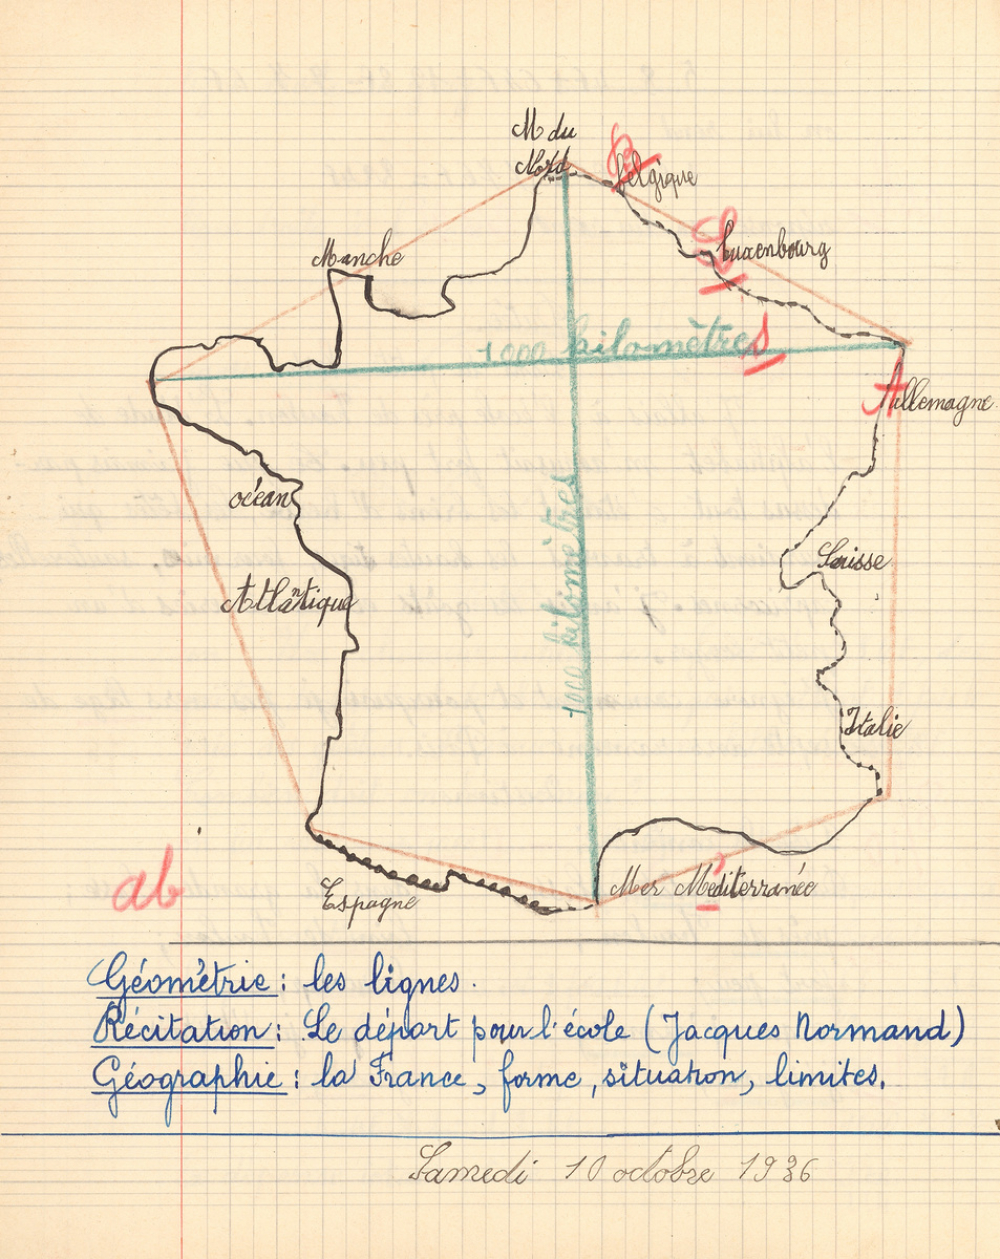 M du
Nord
Belgique
Manche
Luxenbourg
1000 kilomètres
Allemagne
océan
1000 kilomètres
Suisse
Atlantique
Italie
ab
Espagne
Mer Mediterranée
Géométrie : les lignes.
Récitation : Le départ pour l'école (Jacques Normand)
Géographie : la France, forme, situation, limites.
Samedi 10 octobre 1936